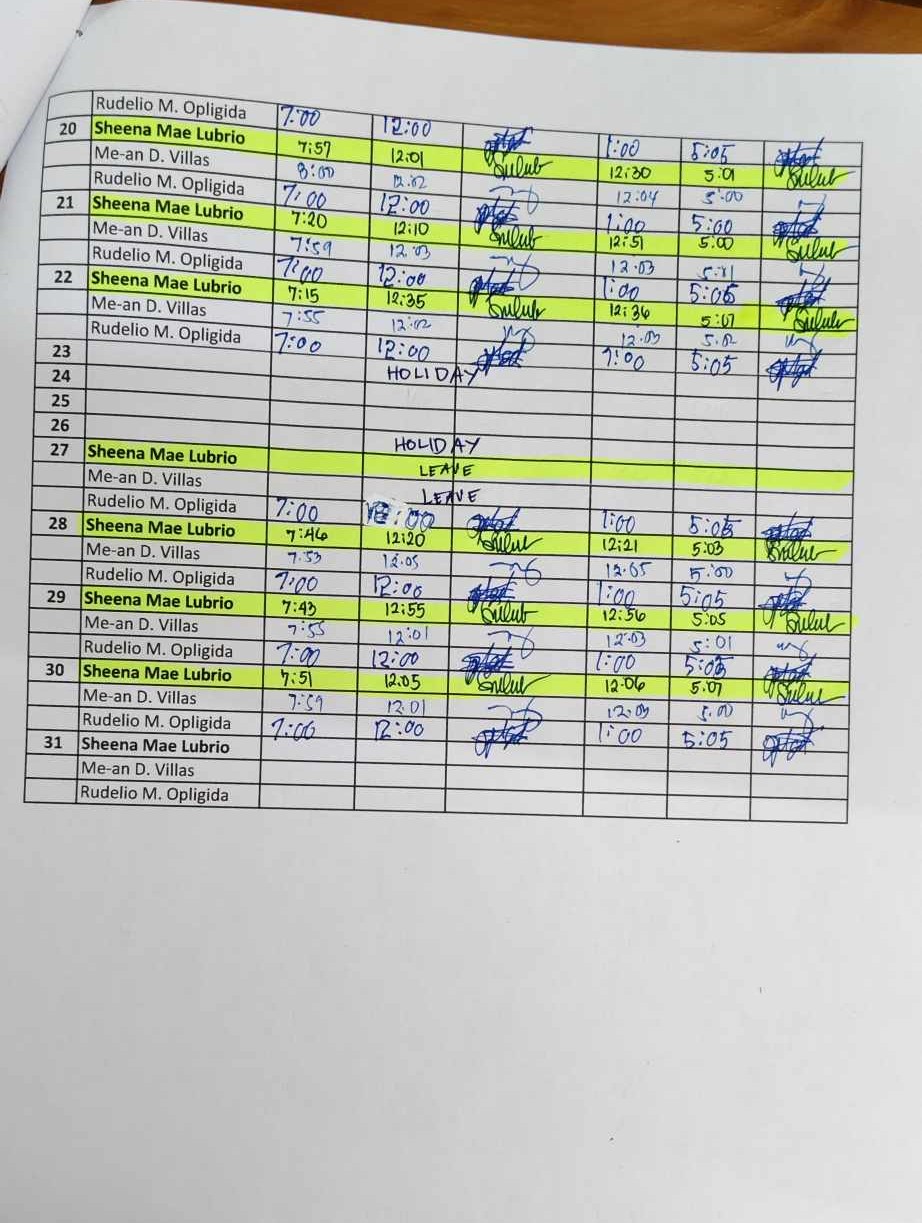 Rudelio M. Opligida 7:00 12:00 1:00 5:05
20 Sheena Mae Lubrio 7:57 12:01 12:30 5:01
Me-an D. Villas 8:00 12:02 12:04 5:00
Rudelio M. Opligida 7:00 12:00 1:00 5:00
21 Sheena Mae Lubrio 7:20 12:10 12:51 5:00
Me-an D. Villas 7:59 12:03 12:03 5:11
Rudelio M. Opligida 7:00 12:00 1:00 5:05
22 Sheena Mae Lubrio 7:15 12:35 12:36 5:07
Me-an D. Villas 7:55 12:02 12:03 5:02
Rudelio M. Opligida 7:00 12:00 1:00 5:05
23
24 HOLIDAY
25
26
27 HOLIDAY
Sheena Mae Lubrio LEAVE
Me-an D. Villas LEAVE
Rudelio M. Opligida 7:00 1:00
28 Sheena Mae Lubrio 7:46 12:20 12:21 5:03
Me-an D. Villas 7:53 12:05 12:05 5:00
Rudelio M. Opligida 7:00 12:00 1:00 5:05
29 Sheena Mae Lubrio 7:43 12:55 12:56 5:05
Me-an D. Villas 7:55 12:01 12:03 5:01
Rudelio M. Opligida 7:00 12:00 1:00
30 Sheena Mae Lubrio 7:51 12:05 12:06 5:07
Me-an D. Villas 7:59 12:01 12:03 5:00
Rudelio M. Opligida 7:00 12:00 1:00 5:05
31 Sheena Mae Lubrio
Me-an D. Villas
Rudelio M. Opligida